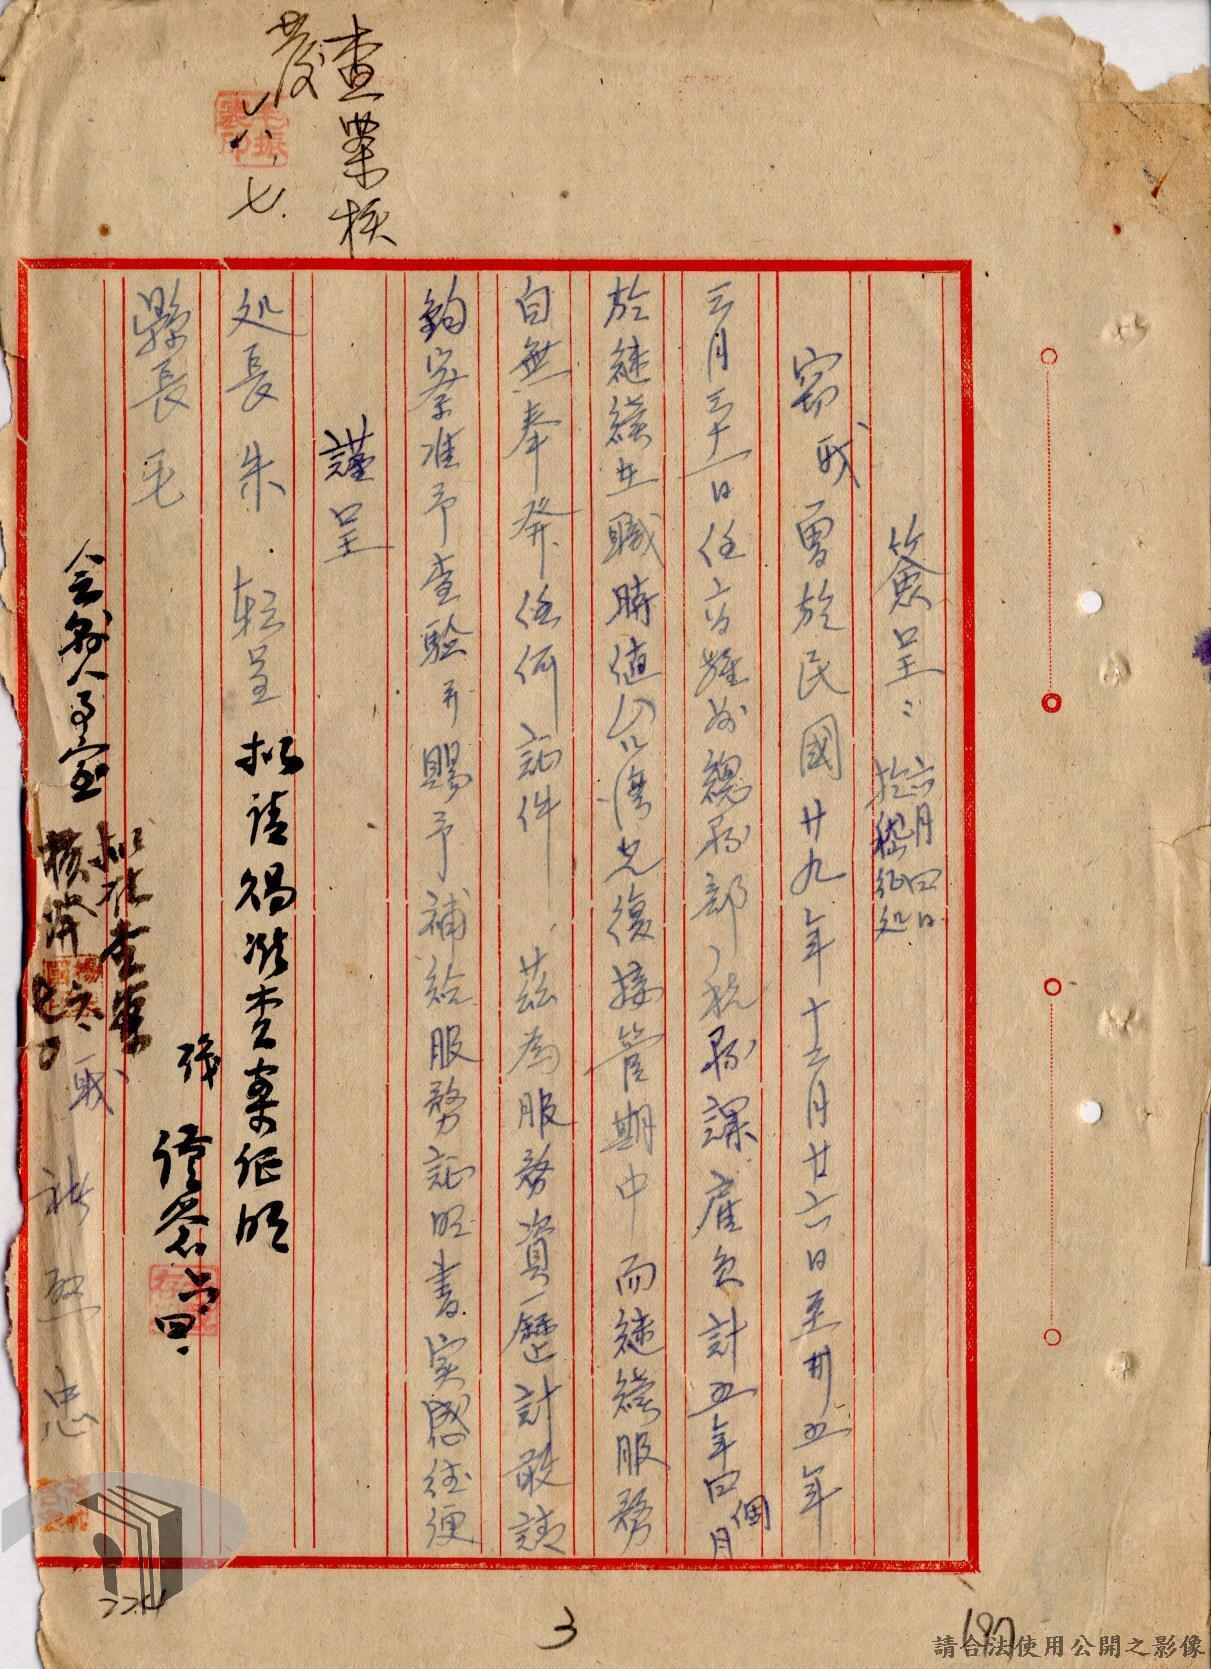 簽呈：六月四日
於稽征処
竊職曾於民國廿九年十二月廿六日至卅五年
三月三十一日任高雄州總務部稅務課雇員計五年四個月
於繼續在職時值台灣光復接管期中而繼續服務
自無奉發任何証件、茲為服務資歷計敬請
鈞察准予查驗并賜予補給服務証明書实感往便
謹呈
処長朱 轉呈
縣長毛
職
忠
擬請惕准查案征明
職
會銜人事室
擬准查案
核発
查案核
發
六、七.
3
197
請合法使用公開之影像